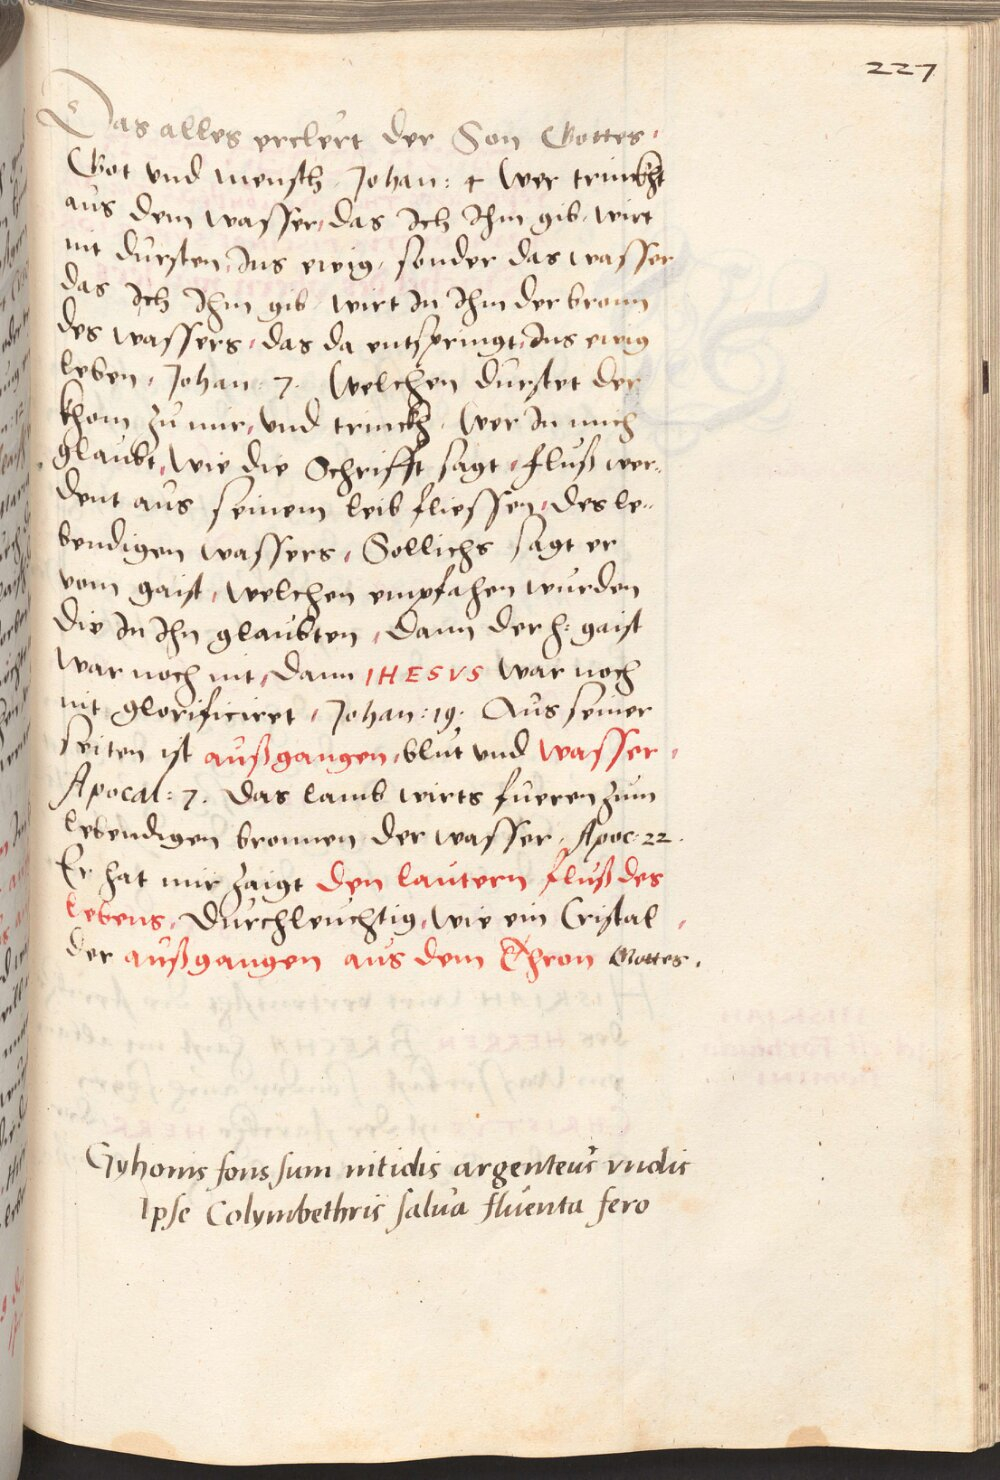 227
Das alles erclert der Son Gottes,
Got vnd mensch, Johan: 4 Wer trinckht
aus dem wasser, das Ich Ihm gib, wirt
nit dursten, Ins ewig, sonder das wasser
das Ich Ihm gib, wirt In Ihm der bronn
des wassers, das da entspringt, Ins ewig
leben, Johan: 7. Welchen durstet der
khom zu mir, vnd trinckh, Wer In mich
glaubt, Wie die Schrifft sagt, fluß wer-
dent aus seinem leib fliessen, des le-
bendigen wassers, Sollichs sagt er
vom gaist, welchen empfahen wurden
die In Ihn glaubten, dann der h: gaist
war noch nit, dann IHESVS war noch
nit glorificiret, Johan: 19. Aus seiner
seiten ist außgangen, blut vnd wasser,
Apocal: 7. das lamb wirts fueren zum
lebendigen bronnen der wasser, Apoc: 22.
Er hat mir zaigt den lautern fluß des
lebens, durchleuchtig, wie ein Cristal,
der außgangen aus dem Thron Gottes.
Gyhonis fons sum nitidis argenteus vndis
Ipse Colymbethris salua fluenta fero